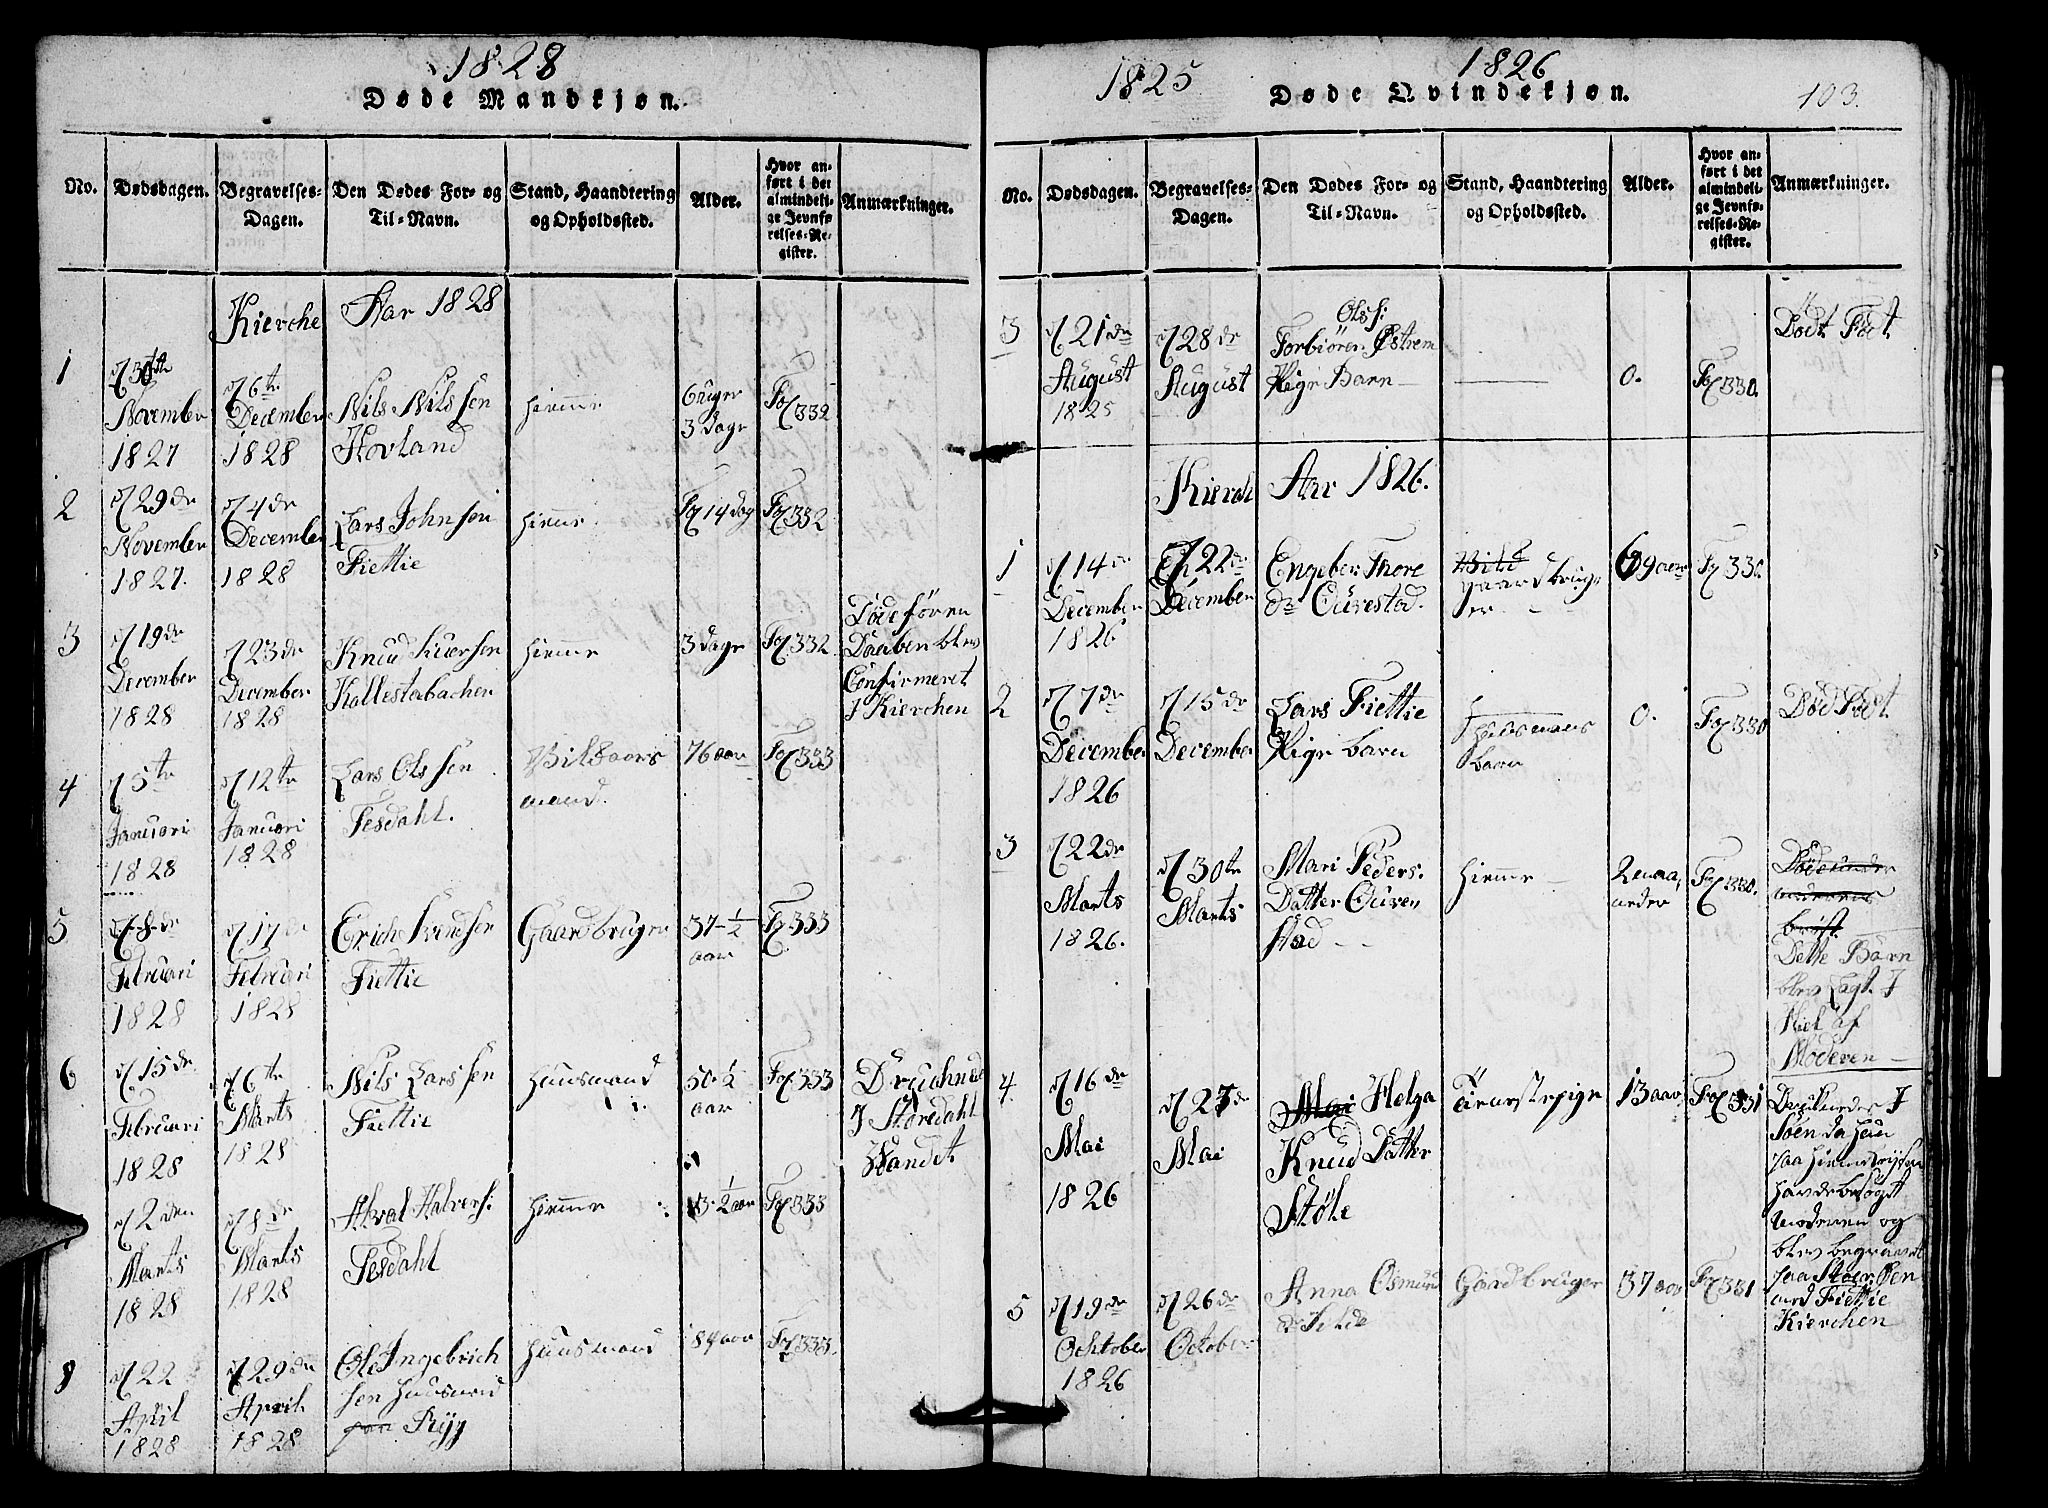 1828
Døde Mandkjøn.
No.
Dødsdagen.
Begravelses-
Dagen.
Den Dødes For- og
Til-Navn.
Stand, Haandtering
og Opholdssted.
Alder.
Hvor an-
ført i det
almindeli-
ge Jevnfø-
relses-Re-
gister.
Anmærkninger.
Kierche Aar 1828
1
30te
November
1827
6te
December
1828
Nils Nilssen
Hovland
hiemme
6 uger
3 Dage
332
2
29de
November
1827.
4de
December
1828
Lars Johnsen
Fiettie
14 dag
332
3
19de
December
1828
23de
December
1828
Knud Iversen
Kallestabachen
hiemme
3 dage
332
Døde føren
Daaben blev
Confirmeret
I Kierchen
4
5te
Januari
1828
12te
Januari
1828
Lars Olssen
Tesdahl.
mand.
76 aar
333
5
8de
Februari
1828
17de
Februari
1828
Erich Svendsen
Fiettie
Gaardbruger
37-1/2
aar
333
6
15de
Februari
1828
6te
Marts
1828
Nils Larssen
Fiettie
Huusmand
50-1/2
aar
333
I Storedahl
Vandet
2den
Marts
1828
8de
Marts
1828
Halvers:
Tesdahl
hiemme
1/2 aar
333
8
22
April
1828
29de
April
1828
Ole Ingebrich
sen
Ryg
Huusmand
84 aar
333.
1825
1826
Døde Qvindekjøn.
103.
No.
Dødsdagen.
Begravelses-
Dagen.
Den Dødes For- og
Til-Navn.
Stand, Haandtering
og Opholdssted.
Alder.
Hvor an-
ført i det
almindeli-
ge Jevnfø-
relses-Re-
gister.
Anmærkninger.
3
21de
August
1825
28de
August
Olss:
Torbiören Östrem
Pige Barn
0.
330.
Dödt Födt
Kierch Aar 1826.
1
14de
December
1826
22de
December
Engeber Thore
dr Ourestad.
gaardbrug
er
69 aar
330
2
7de
December
1826
15de
December
Lars Fiettie
Pige barn
Huusmans
barn
0.
330
Död Födt
3
22de
Marts
1826.
30te
Marts
Mari Peders.
Datter Ouren
stad
hiemme
2 maa,
neder
330.
Dette Barn
blev Lagt I
Hiel af
Moderen
4.
16de
Mai
1826
23de
Mai
Mari Helga
Knud Datter
Støle
Tienestepige
13 aar
331
Druknede I
Søen da Hun
paa Hiemreysen
havde besøgt
moderen og
blev begravet
paa
ved Fiettie
Kierchen
5
19de
Ocktober
1826
26de
October
Anna Osmund
Gardbruger
37 aar
331